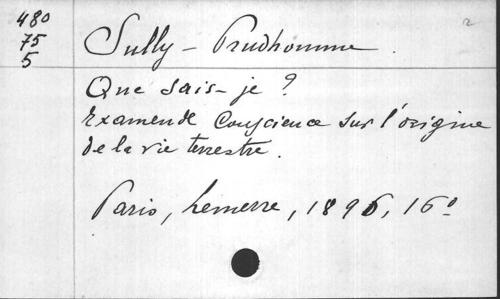 480
75
5
Sully-Prudhomme.
2
Que sais-je ?
Examen de Conscience sur l'origine
de la vie terrestre.
Paris, Lemerre, 1896, 16º